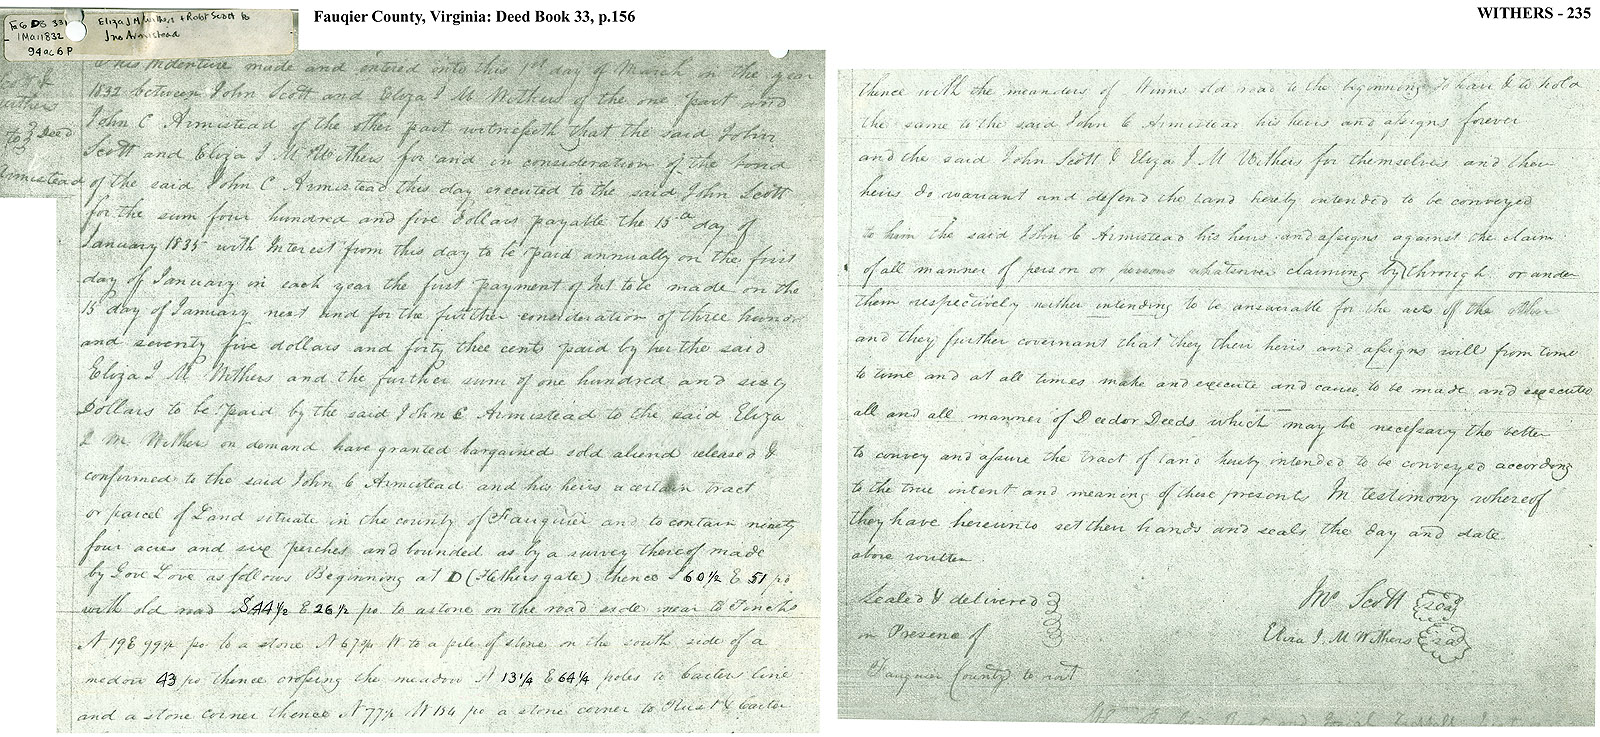 Fauqier County, Virginia: Deed Book 33, p.156
WITHERS - 235
1 Mar 1832
94ac 6 P
Eliza J M Withers & Robt Scott to
Jno Armistead
Deed
Armistead
This Indenture made and entered into this 1st day of March in the year
1832 between John Scott and Eliza I M Withers of the one part and
John C Armistead of the other part witnesseth that the said John
Scott and Eliza I M Withers for and in consideration of the bond
of the said John C Armistead this day executed to the said John Scott
for the sum four hundred and five Dollars payable the 15th day of
January 1835 with Interest from this day to be paid annually on the first
day of January in each year the first payment of Int to be made on the
15 day of January next and for the further consideration of three hundred
and seventy five dollars and forty thee cents paid by her the said
Eliza I M Withers and the further sum of one hundred and sixty
Dollars to be paid by the said John C Armistead to the said Eliza
I M Withers on demand have granted bargained sold aliend released &
confirmed to the said John C Armistead and his heirs a certain tract
or parcel of Land situate in the county of Fauquier and to contain ninety
four acres and six perches and bounded as by a survey thereof made
by Love as follows Beginning at D (Hethers gate) thence S 60 1/2 E 51 po
with old road S 44 1/2 E 26 1/2 po to a stone on the road side near to Finchs
N 19 E 99 po to a stone N 67 W to a pile of stone on the south side of a
medow 43 po thence crossing the meadow N 13 1/4 E 64 1/4 poles to Carters line
and a stone corner thence N 77 1/2 W 134 po a stone corner to Rust & Carter
thence with the meanders of Winns old road to the beginning To have & to hold
the same to the said John C Armistead his heirs and assigns forever
and the said John Scott & Eliza I M Withers for themselves and their
heirs do warrant and defend the land hereby intended to be conveyed
to him the said John C Armistead his heirs and assigns against the claim
of all manner of person or persons whatsoever claiming by through or under
them respectively neither intending to be answerable for the acts of the other
and they further covenant that they their heirs and assigns will from time
to time and at all times make and execute and cause to be made and executed
all and all manner of Deed or Deeds which may be necessary the better
to convey and assure the tract of land hereby intended to be conveyed according
to the true intent and meaning of these presents In testimony whereof
they have hereunto set their hands and seals the day and date
above written
Sealed & delivered
in Presence of
Jno Scott seal
Eliza I M Withers seal
Fauquier County to wit